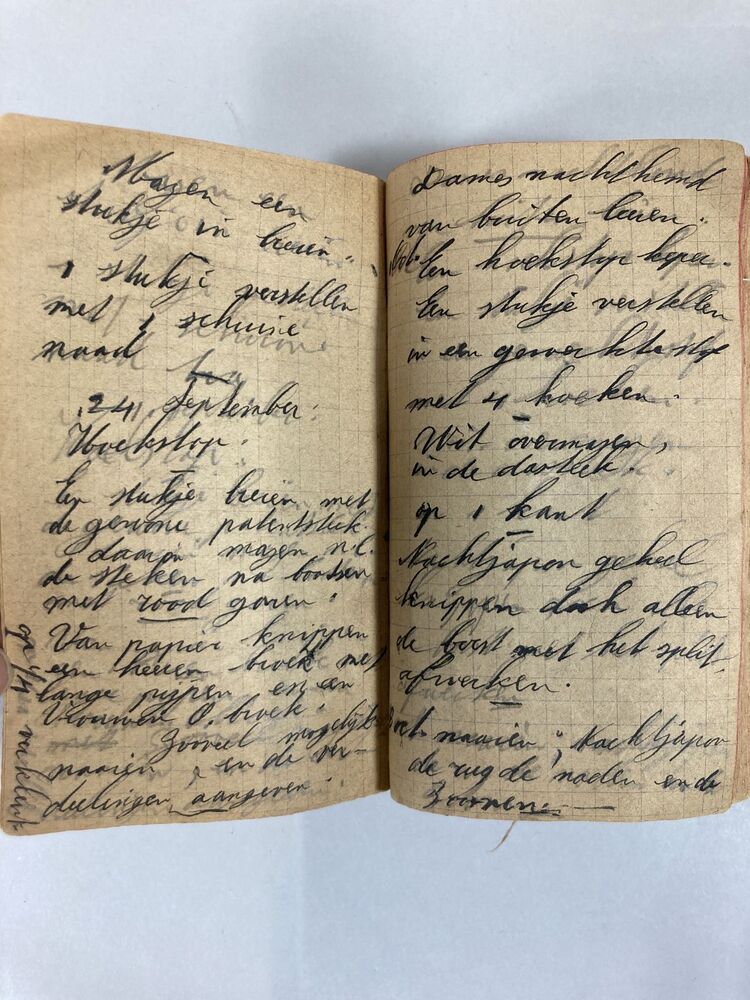 Mazen een
stukje in breien.
1 stukje verstellen
met 1 schuine
naad
24 September.
Hoekstop.
En stukje breien met
de gewone patentsteek.
daarin mazen n.l.
de steken na bootsen
met rood garen.
Van papier knippen
een heeren broek met
lange pijpen en een
Vrouwen O. broek.
Zooveel mogelijk
naaien, en de ver-
deelingen aangeven.
op 1/4
Dames nachthemd
van buiten leeren.
En hoekstop keper.
En stukje verstellen
in een gewerkte stof
met 4 hoeken.
Wit overmazen,
in de dasteek.
op 1 kant
Nachtjapon geheel
knippen doch alleen
de borst met het split
afwerken.
naaien, Nachtjapon
de rug de naden en de
Zoomen.